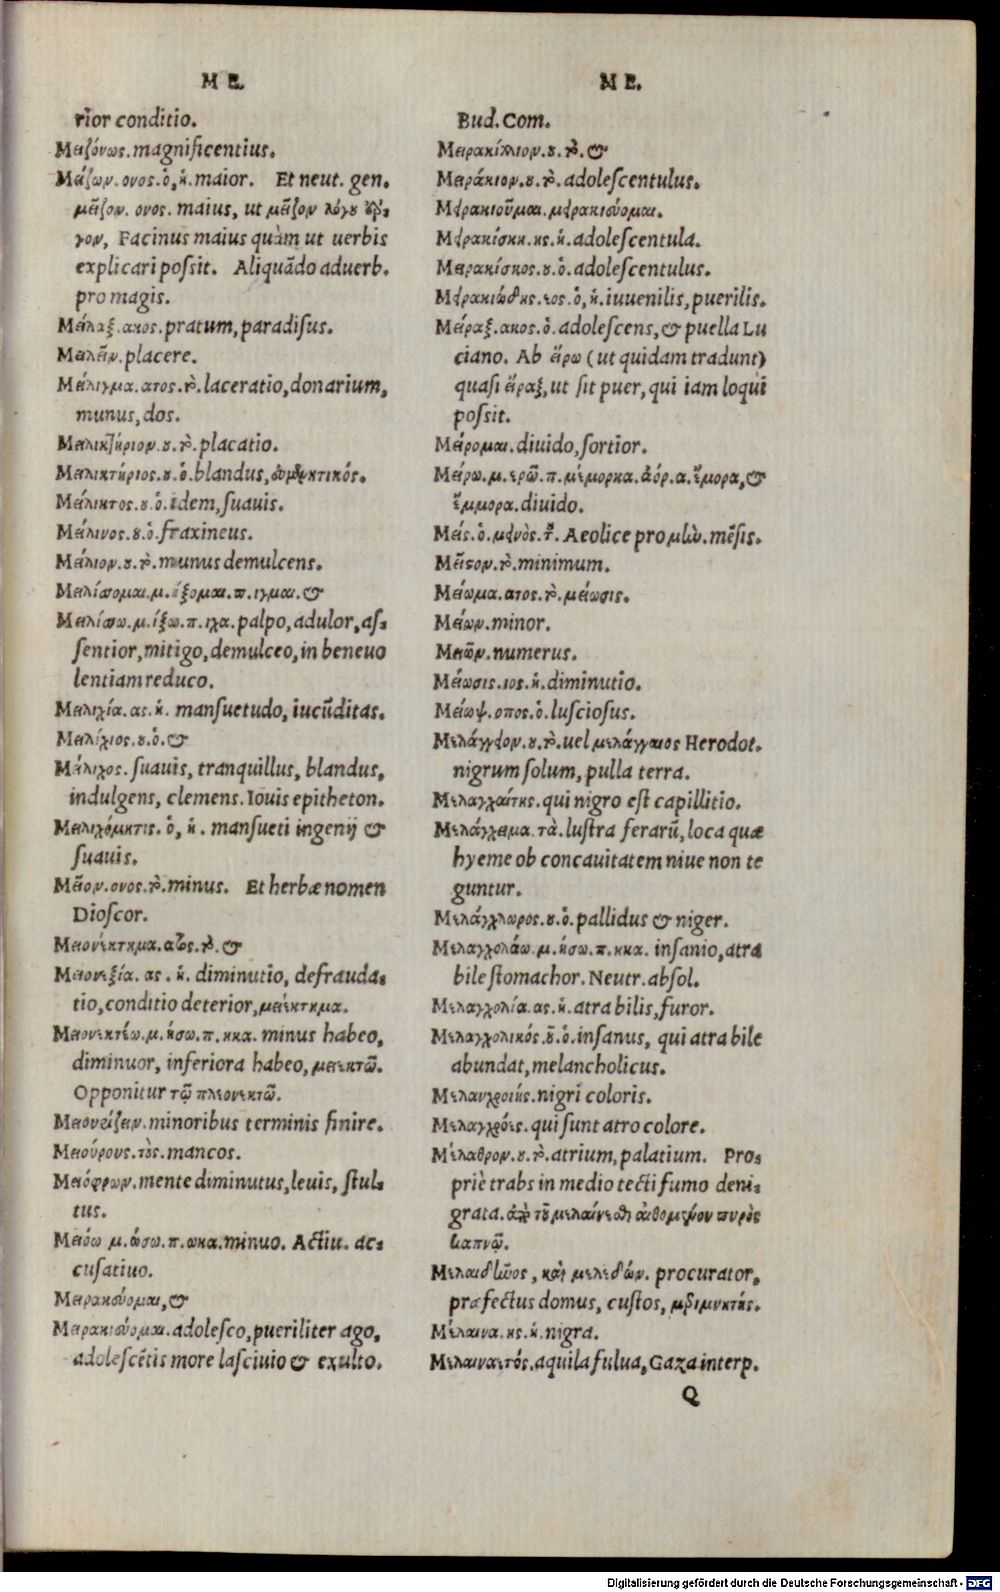 ME.
rior conditio.
Μειζόνως. magnificentius.
Μείζων. ονος. ὁ, ἡ. maior. Et neut. gen.
μεῖζον. ονος. maius, ut μεῖζον λόγου ἔρ-
γον, Facinus maius quàm ut uerbis
explicari possit. Aliquādo aduerb.
pro magis.
Μείλαξ. ακος. pratum, paradisus.
Μειλεῖν. placere.
Μείλιγμα. ατος. τὸ. laceratio, donarium,
munus, dos.
Μειλικτήριον. ου. τὸ. placatio.
Μειλικτήριος. ου. ὁ. blandus,
Μείλικτος. ου. ὁ. idem, suauis.
Μείλινος. ου. ὁ. fraxineus.
Μείλιον. ου. τὸ. munus demulcens.
Μειλίσσομαι. μ. ίξομαι. π. ιγμαι. &
Μειλίσσω. μ. ίξω. π. ιχα. palpo, adulor, as-
sentior, mitigo, demulceo, in beneuo
lentiam reduco.
Μειλιχία. ας. ἡ. mansuetudo, iucūditas.
Μειλίχιος. ου. ὁ. &
Μείλιχος. suauis, tranquillus, blandus,
indulgens, clemens. Iouis epitheton.
Μειλιχόμητις. ὁ, ἡ. mansueti ingenij &
suauis.
Μεῖον. ονος. τὸ. minus. Et herbæ nomen
Dioscor.
Μειονέκτημα. ατος. τὸ. &
Μειονεξία. ας. ἡ. diminutio, defrauda-
tio, conditio deterior, μειέκτημα.
Μειονεκτέω. μ. ήσω. π. ηκα. minus habeo,
diminuor, inferiora habeo, μειεκτῶ.
Opponitur τῷ πλεονεκτῶ.
Μειουρίζειν. minoribus terminis finire.
Μειούρους. τοὺς. mancos.
Μειόφρων. mente diminutus, leuis, stul-
tus.
Μειόω μ. ώσω. π. ωκα. minuo. Actiu. ac-
cusatiuo.
Μειρακεύομαι, &
Μειρακιεύομαι. adolesco, pueriliter ago,
adolescētis more lasciuio & exulto.
ME.
Bud. Com.
Μειρακύλλιον. ου. τὸ. &
Μειράκιον. ου. τὸ. adolescentulus.
Μειρακιοῦμαι. μειρακιεύομαι.
Μειρακίσκη. ης. ἡ. adolescentula.
Μειρακίσκος. ου. ὁ. adolescentulus.
Μειρακιώδης. εος. ὁ, ἡ. iuuenilis, puerilis.
Μείραξ. ακος. ὁ. adolescens, & puella Lu
ciano. Ab εἴρω (ut quidam tradunt)
quasi εἴραξ, ut sit puer, qui iam loqui
possit.
Μείρομαι. diuido, sortior.
Μείρω. μ. ερῶ. π. μέμορκα. ἀόρ. α. ἔμορα, &
ἔμμορα. diuido.
Μείς. ὁ. μηνὸς. τ. Aeolice pro μὴν. mēsis.
Μεῖστον. τὸ. minimum.
Μείωμα. ατος. τὸ. μείωσις.
Μείων. minor.
Μειῶν. numerus.
Μείωσις. ιος. ἡ. diminutio.
Μείωψ. οπος. ὁ. lusciosus.
Μελάγγειον. ου. τὸ. uel μελάγγαιος Herodot.
nigrum solum, pulla terra.
Μελαγχαίτης. qui nigro est capillitio.
Μελάγχειμα. τὰ. lustra ferarū, loca quæ
hyeme ob concauitatem niue non te
guntur.
Μελάγχλωρος. ου. ὁ. pallidus & niger.
Μελαγχολάω. μ. ήσω. π. ηκα. insanio, atra
bile stomachor. Neutr. absol.
Μελαγχολία. ας. ἡ. atra bilis, furor.
Μελαγχολικός. οῦ. ὁ. insanus, qui atra bile
abundat, melancholicus.
Μελανχροιής. nigri coloris.
Μελαγχρόες. qui sunt atro colore.
Μέλαθρον. ου. τὸ. atrium, palatium. Pro-
priè trabs in medio tecti fumo deni-
grata. ἀπὸ τοῦ μελαίνεσθαι αἰθομένου πυρὸς
καπνῷ.
Μελαιδῶνος, καὶ μελεδών. procurator,
præfectus domus, custos, μεριμνητής.
Μέλαινα. ης. ἡ. nigra.
Μελαιναετός. aquila fulua, Gaza interp.
Q
Digitalisierung gefördert durch die Deutsche Forschungsgemeinschaft - DFG